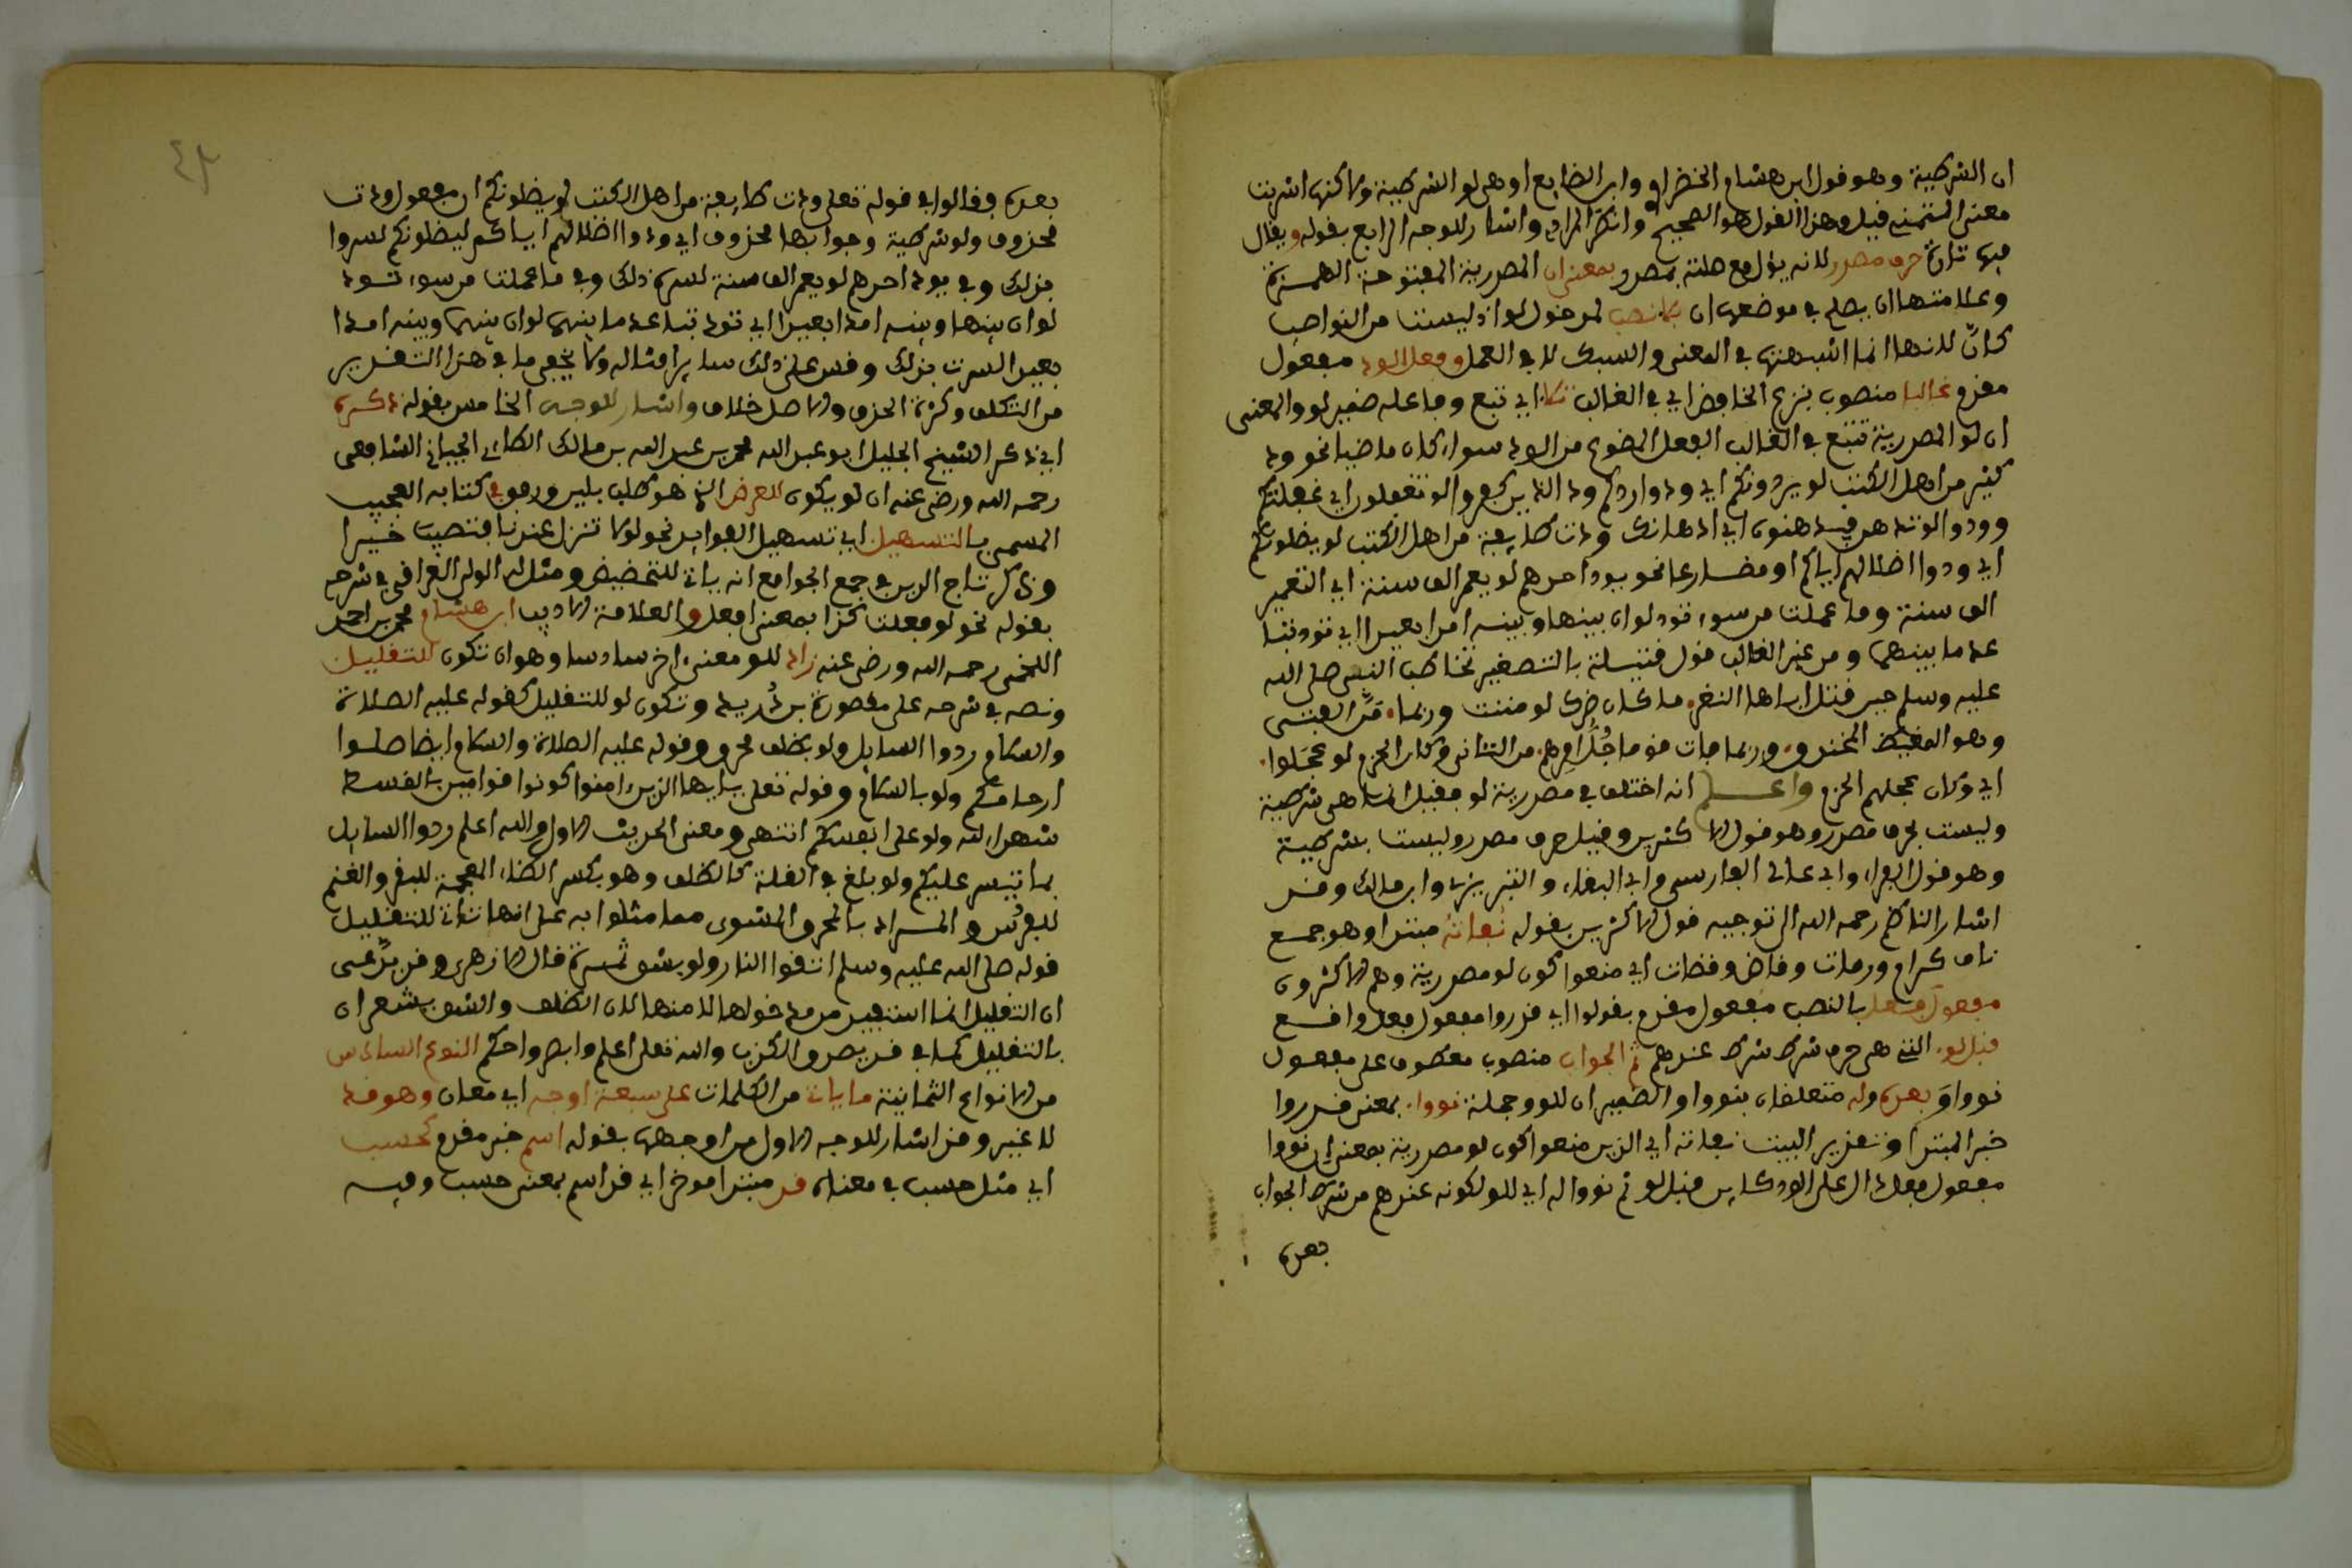 ان الشرطية وهو قول ابن هشام الخضراوي وابن الضايع او هي لو الشرطية ولاكنها اشربت
معنى التمني قيل وهذا القول هو الصحيح وانكره المرادي واشار للوجه الرابع بقوله ويقال
فيها تارة حرف مصدر لانه يؤل مع صلته بمصدر وبمعنى ان المصدرية المفتوحة الهمزة
وعلامتها ان يصلح في موضعها ان بلا نصب لمدخول لو اذ ليست من النواصب
كأن لانها انما اشبهتها في المعنى والسبك لا في العمل وفعل الود مفعول
مقدم غالبا منصوب بنزع الخافض اي في الغالب تلا اي تتبع وفاعله ضمير لو والمعنى
ان لو المصدرية تتبع في الغالب الفعل المصوغ من الود سواء كان ماضيا نحو ود
كثير من اهل الكتب لو يردونكم اي ودوا ردكم ود الذين كفروا لو تغفلون اي غفلتكم
وودوا لو تدهن فيدهنون اي ادهانك ودت طايفة من اهل الكتب لو يضلونكم
اي ودوا اضلالهم اياكم او مضارعا نحو يود احدهم لو يعمر الف سنة اي التعمير
الف سنة وما عملت من سوء تود لو ان بينها وبينه امدا بعيدا اي تود تبا
عد ما بينهما ومن غير الغالب قول قتيلة بالتصغير تخاطب النبي صلى الله
عليه وسلم حين قتل اباها النضر ما كان ضرك لو مننت وربما من الفتى
وهو المغيظ المحنق وربما فات قوما جل امرهم من التأني وكان الحزم لو عجلوا
اي وكان عجلهم الحزم واعلم انه اختلف في مصدرية لو فقيل انما هي شرطية
وليست بحرف مصدر وهو قول الاكثرين وقيل حرف مصدر وليست بشرطية
وهو قول الفراء وابي علي الفارسي وابي البقاء والتبريزي وابن مالك وقد
اشار الناظم رحمه الله الى توجيه قول الاكثرين بقوله نفاته مبتدا وهو جمع
ناف كرام ورمات وقاض وقضات اي منعوا كون لو مصدرية وهم الاكثرون
مفعول فعل بالنصب مفعول مقدم بقولوا اي قدروا مفعول فعل واقع
قبل لو التي هي حرف شرط شرط عندهم ثم الجواب منصوب معطوف على مفعول
نووا وبعده وله متعلقان بنووا والضميران للو وجملة نووا بمعنى قدروا
خبر المبتدا وتقدير البيت نفاته اي الذين منعوا كون لو مصدرية بمعنى ان نووا
مفعول فعل دال على الود كاين قبل لو ثم نووا له اي للو لكونه عندهم حرف شرط الجواب
بعده
٤٣
بعده فقالوا في قوله تعلى ودت طايفة من اهل الكتب لو يضلونكم ان مفعول ودت
محذوف ولو شرطية وجوابها محذوف اي ودوا اضلالهم اياكم لو يضلونكم لسروا
بذلك وفي يود احدهم لو يعمر الف سنة لسره ذلك وفي ما عملت من سوء تود
لو ان بينها وبينه امدا بعيدا اي تود تباعد ما بينهما لو ان بينها وبينه امدا
بعيدا لسرت بذلك وقس على ذلك ساير امثاله ولا يخفى ما في هذا التقدير
من التكلف وكثرة الحذف والاصل خلاف واشار للوجه الخامس بقوله ذكره
اي ذكر الشيخ الجليل ابو عبد الله محمد بن عبد الله بن مالك الطاءي الجياني الشافعي
رحمه الله ورضي عنه ان لو يكون للعرض الذي هو طلب بلين ورفق في كتابه العجيب
المسمى بالتسهيل اي تسهيل الفوايد نحو لو لا تنزل عندنا فتصيب خيرا
وذكر تاج الدين في جمع الجوامع انه يات للتحضيض ومثل له الولي العراقي في شرحه
بقوله نحو لو فعلت كذا بمعنى افعل والعلامة الاديب ابن هشام محمد بن احمد
اللخمي رحمه الله ورضي عنه زاد للو معنى اخر سادسا وهو ان تكون للتقليل
ونصه في شرحه على مقصورة بن دريد وتكون لو للتقليل كقوله عليه الصلاة
والسلام ردوا السايل ولو بظلف محرق وقوله عليه الصلاة والسلام ايضا صلوا
ارحامكم ولو بالسلام وقوله تعلى يايها الذين ءامنوا كونوا قوامين بالقسط
شهداء لله ولو على انفسكم انتهى ومعنى الحديث الاول والله اعلم ردوا السايل
بما تيسر عليكم ولو بلغ في القلة كالظلف وهو بكسر الظاء المعجمة للبقر والغنم
للفرس والمراد بالمحرق المشوى مما مثلوا به على انها تات للتقليل
قوله صلى الله عليه وسلم اتقوا النار ولو بشق تمرة قال الازهري وقد يدعى
ان التقليل انما استفيد من مدخولها لا منها لان الظلف والشق يشعران
بالتقليل كما في قد يصدق الكذوب والله تعلى اعلم وابصر واحكم النوع السادس
من الانواع الثمانية ما يات من الكلمات على سبعة اوجه اي معان وهو قد
لا غير وقد اشار للوجه الاول من اوجهها بقوله اسم خبر مقدم كحسب
اي مثل حسب في معناه قد مبتدا موخر اي قد اسم بمعنى حسب وفيه